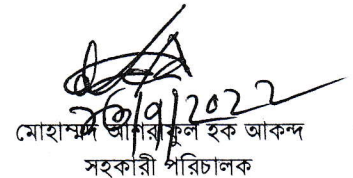 ২৫/৭/2022
মোহাম্মদ আশরাফুল হক আকন্দ
সহকারী পরিচালক